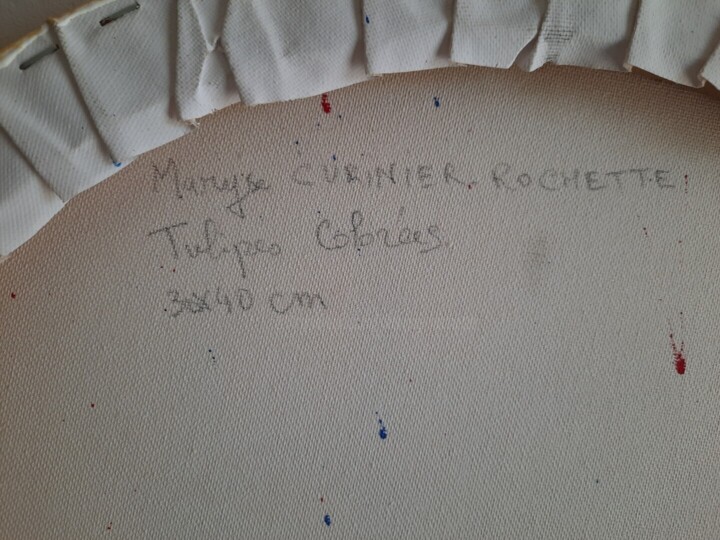 Maryse CURINIER. ROCHETTE
Tulipes Colorées.
30x40 cm